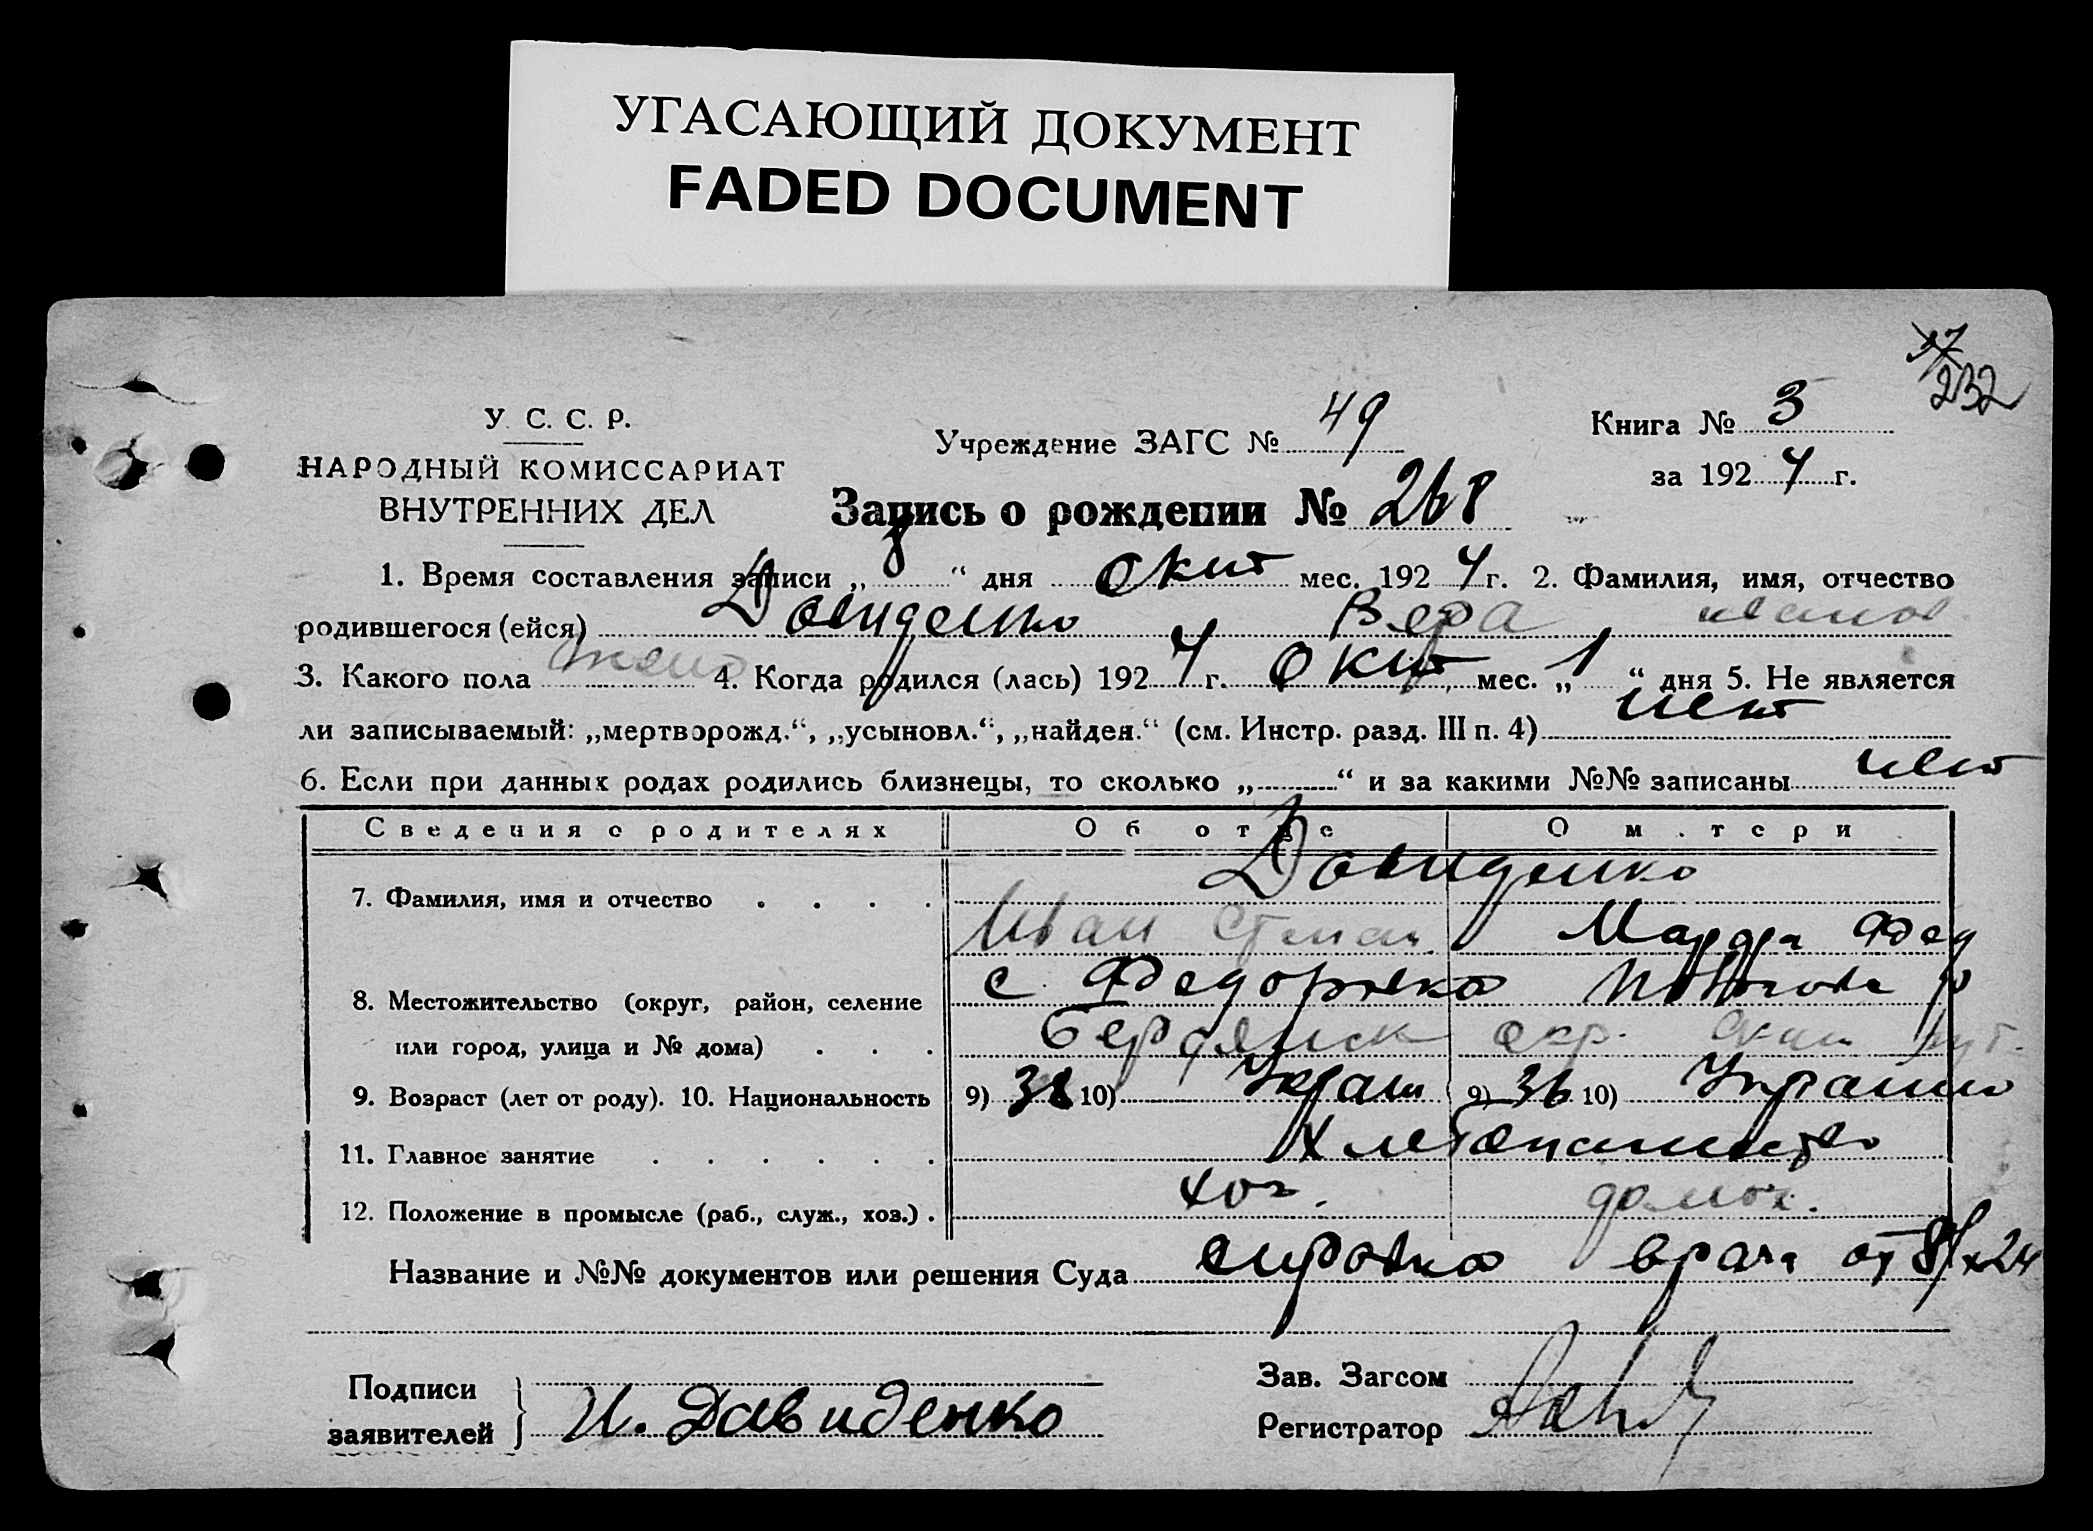 УГАСАЮЩИЙ ДОКУМЕНТ
FADED DOCUMENT
232
У. С. С. Р.
НАРОДНЫЙ КОМИССАРИАТ
ВНУТРЕННИХ ДЕЛ
Учреждение ЗАГС № 49
Книга № 3
за 192 4 г.
Запись о рождении № 268
1. Время составления записи „ 8 “ дня окт мес. 192 4 г. 2. Фамилия, имя, отчество
родившегося (ейся) Давиденко Вера иванов
3. Какого пола жено 4. Когда родился (лась) 192 4 г. окт мес. „ 1 “ дня 5. Не является
ли записываемый: „мертворожд.“, „усыновл.“, „найден.“ (см. Инстр. разд. III п. 4) нет
6. Если при данных родах родились близнецы, то сколько „ “ и за какими №№ записаны нет
Сведения о родителях Об отце О матери
7. Фамилия, имя и отчество . . . . Давиденко
Иван Марфа Фед
8. Местожительство (округ, район, селение с. Федоровка
или город, улица и № дома) . . . Бердянск окр.
9. Возраст (лет от роду). 10. Национальность 9) 38 10) Украин 9) 36 10) Украин
11. Главное занятие . . . . . . Хлебопашество
12. Положение в промысле (раб., служ., хоз.) . хоз. домох.
Название и №№ документов или решения Суда справка врача от 8/X 24
Подписи
заявителей И. Давиденко
Зав. Загсом
Регистратор